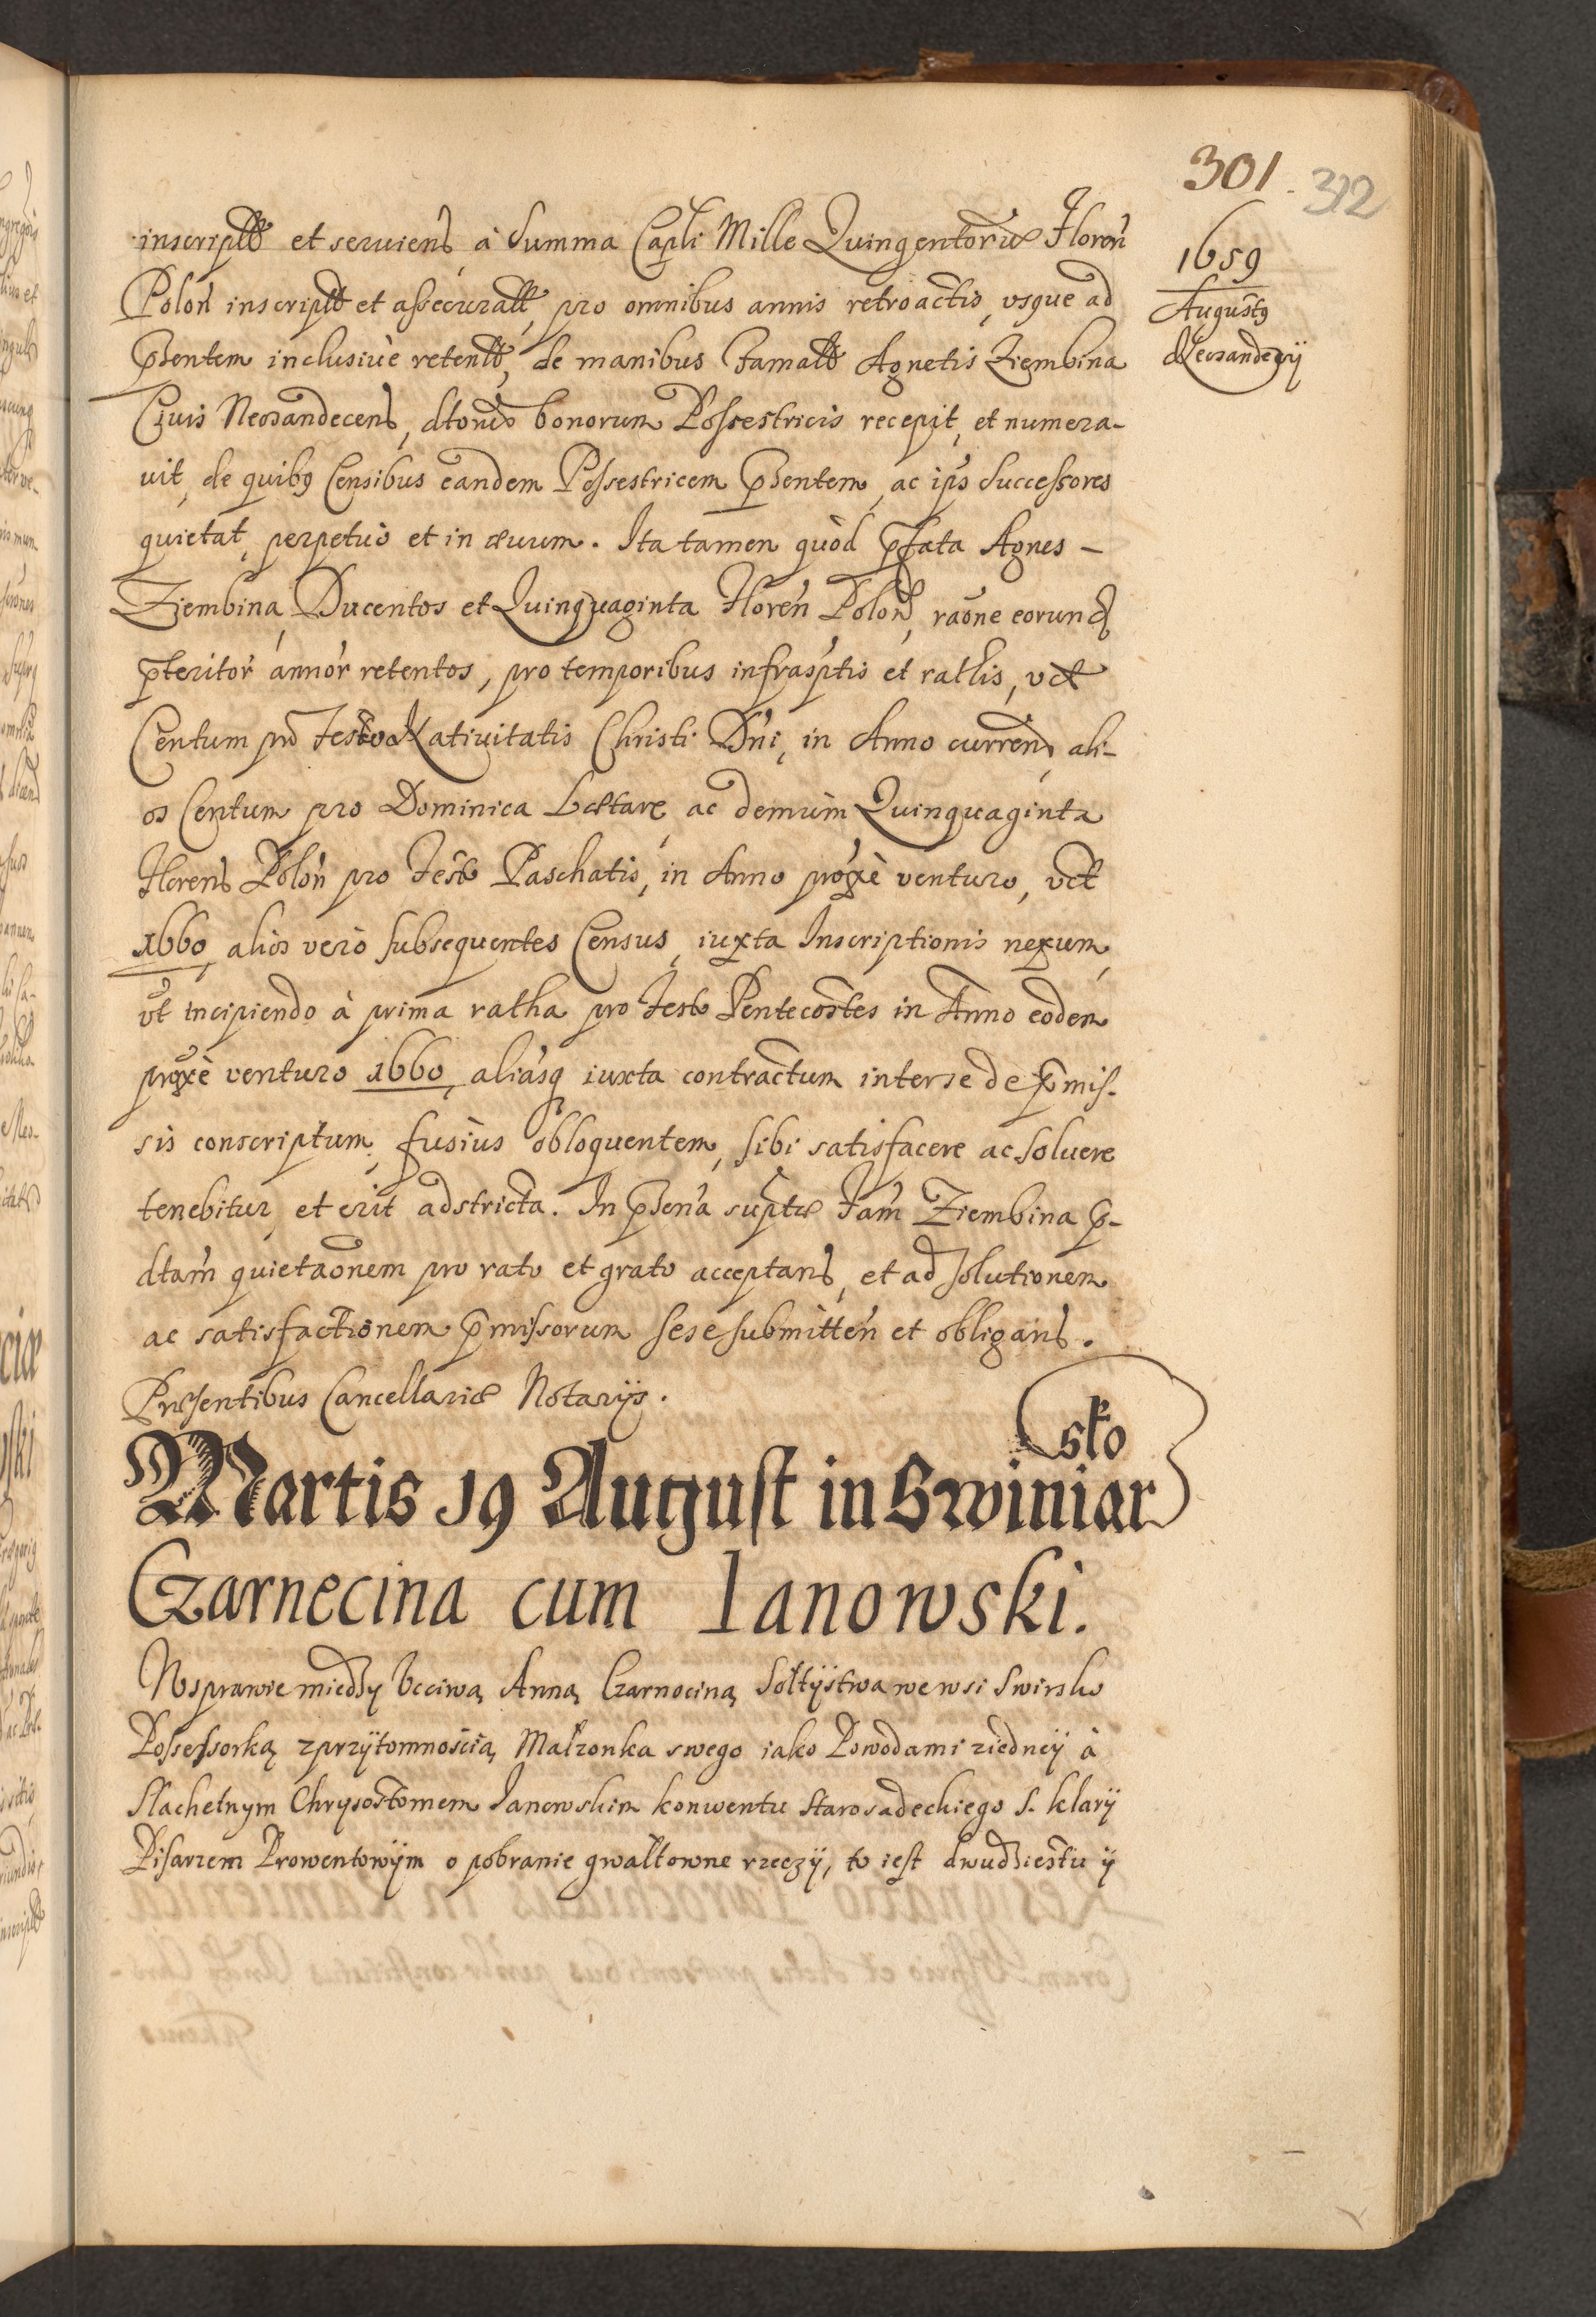 301. 312
1659
Augustq
Neosandecij
inscript et seruiens, à Summa Capli Mille Quingentorũ Floreñ
Poloñ inscript et assecurat, pro omnibus annis retroactis, vsque ad
pñtem inclusiuè retent, de manibus Famat Agnetis Ziembina
Ciuis Neosandecens, dtorũ bonorum Possestricis recepit, et numera-
uit, de quibq Censibus eandem Possestricem psentem, ac ips Successores
quietat, perpetuò et in æuum. Ita tamen quòd pfata Agnes –
Ziembina, Ducentos et Quinquaginta Floreñ Polon, raõne eorund
pteritor annor retentos, pro temporibus infrasptis et rathis, vct
Centum pro Festo Natiuitatis Christi Dñi, in Anno curren, ali-
os Centum pro Dominica Lætare, ac demùm Quinquaginta
Florens Poloñ pro Festo Paschatis, in Anno proxè venturo, vct
1660, alios verò subsequentes Census, iuxta Inscriptionis nexum,
vt incipiendo à prima ratha pro Festo Pentecostes in Anno eodem
proxè venturo 1660, aliasq iuxta contractum inter se de pmis-
sis conscriptum, fusiùs obloquentem, sibi satisfacere ac soluere
tenebitur, et erit adstricta. In psen̄a suptæ Fam̃ Ziembina p-
dtam̃ quietaõnem pro rato et grato acceptans, et ad solutionem
ac satisfactionem pmissorum sese submitteñ et obligans.
Præsentibus Cancellariæ Notarijs.
sko
Martis 19 August in Swiniar
Czarnecina cum Ianowski.
W sprawie miedzy Vcciwą Anną Czarnociną Sołtystwa we wsi Swirsko
Possessorką z przytomnością Małzonka swego iako Powodami z iedneij à
Slachetnym Chrysostomem Janowskim konwentu Starosadeckiego S. Klarij
Pisarzem Prowentowym o pobranie gwałtowne rzeczij, to iest dwudziestu ij